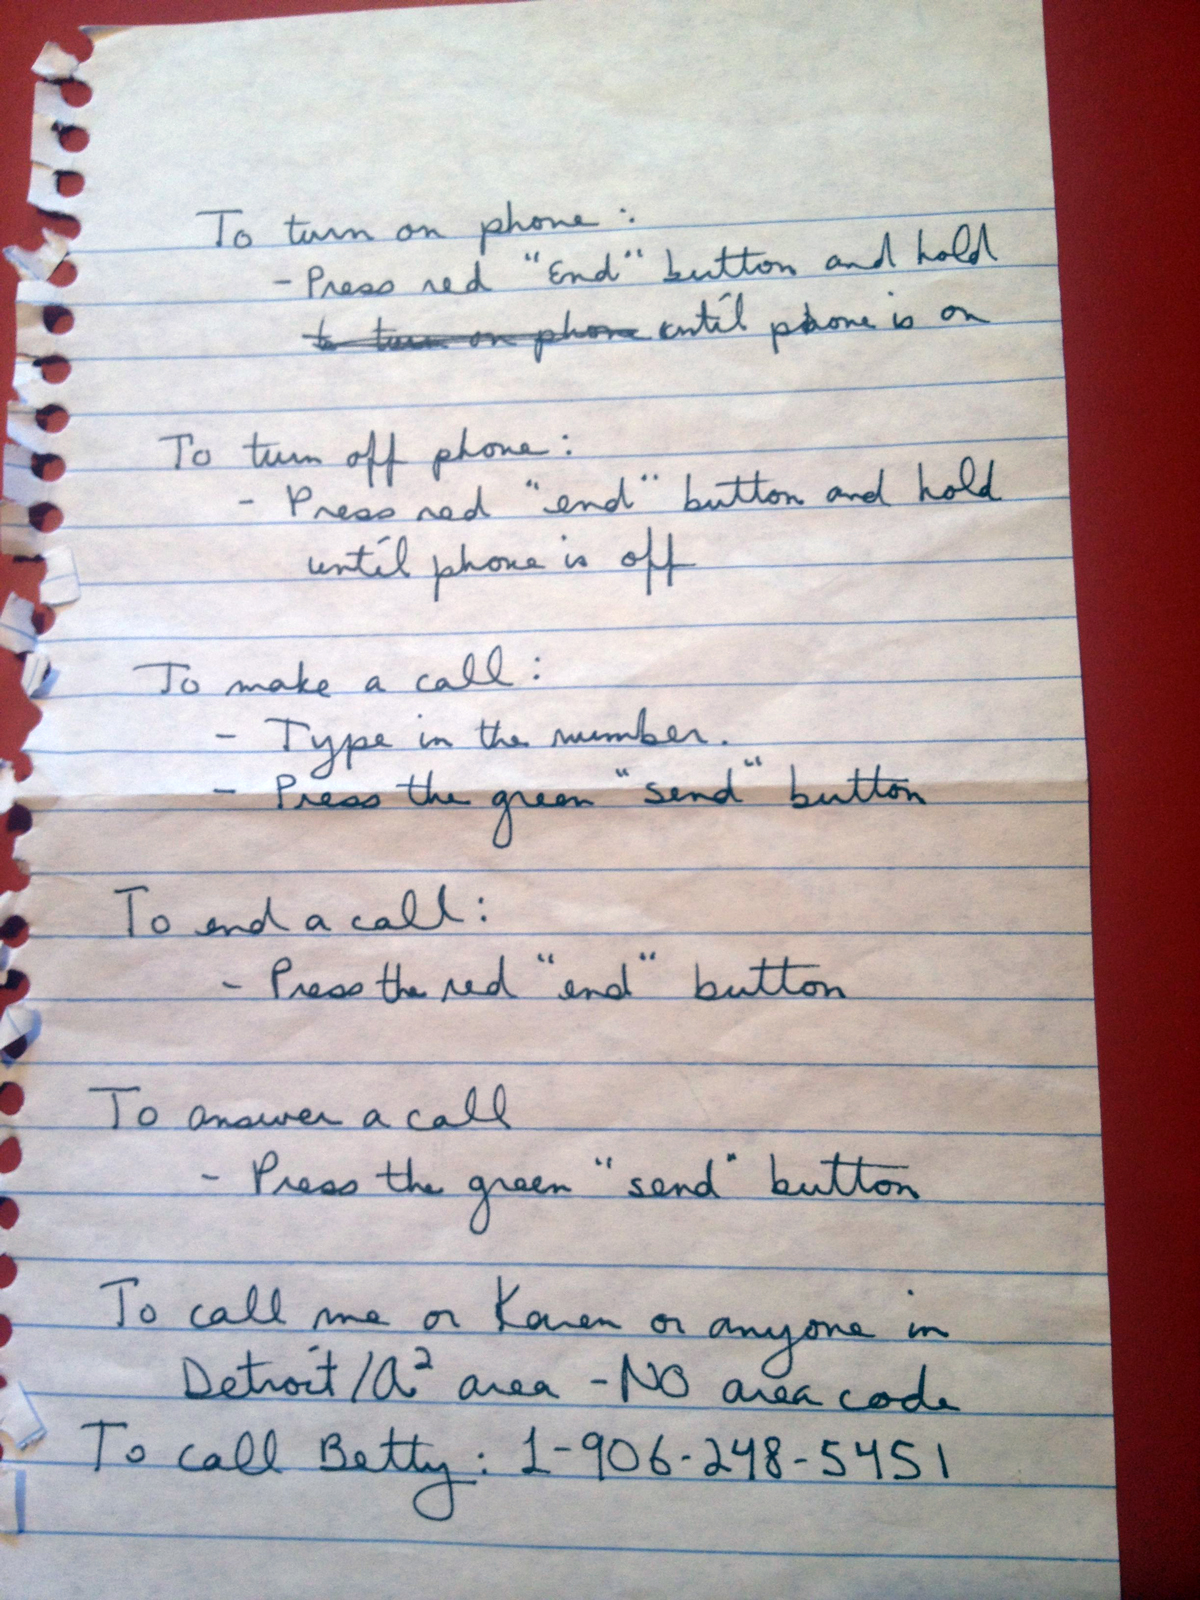 To turn on phone:
- Press red "End" button and hold
to turn on phone until phone is on
To turn off phone:
- Press red "end" button and hold
until phone is off
To make a call:
- Type in the number.
- Press the green "send" button
To end a call:
- Press the red "end" button
To answer a call
- Press the green "send" button
To call me or Karen or anyone in
Detroit/A² area - NO area code
To call Betty: 1-906-248-5451